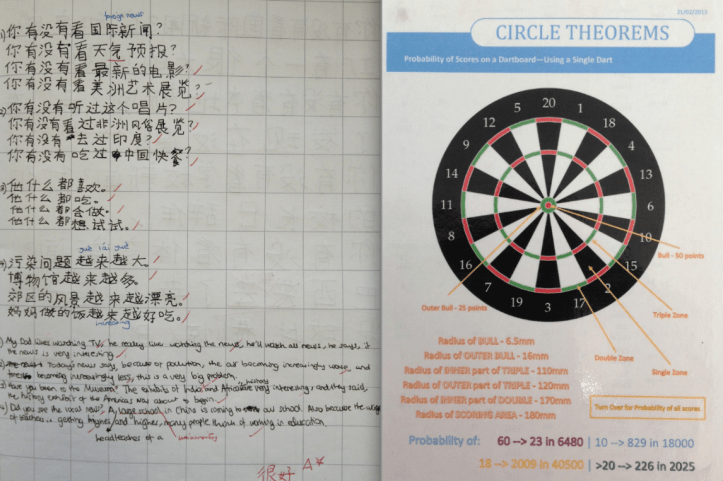 foreign news
1) 你有没有看国际新闻?
你有没有看天气预报?
你有没有看最新的电影?
你有没有看美洲艺术展览?
2) 你有没有听过这个唱片?
你有没有看过非洲风俗展览?
你有没有去过印度?
你有没有吃过中国快餐?
3) 他什么都喜欢。
他什么都吃。
他什么都会做。
他什么都想试试。
yuè lái yuè
4) 污染问题越来越大。
博物馆越来越多。
郊区的风景越来越漂亮。
妈妈做的饭越来越好吃。
1) My Dad likes watching TV, he really likes watching the news, he'll watch all news, he says, if
the news is very interesting.
2) Today's news says, because of pollution, the air becoming increasingly worse, and
becoming increasingly less, this is a very big problem.
3) Have you been to the Museum? The exhibits of India and Africa were very interesting, and they said,
the history exhibit of the Americas was about to begin.
4) Did you see the local news? A large school in China is coming to our school. Also because the
of teachers is getting higher and higher, many people think of working in education.
headteacher of a
很好 A*
21/02/2023
CIRCLE THEOREMS
Probability of Scores on a Dartboard—Using a Single Dart
20
5
1
12
18
9
4
14
13
11
6
8
10
16
15
7
2
19
17
3
Bull - 50 points
Outer Bull - 25 points
Triple Zone
Double Zone
Single Zone
Radius of BULL - 6.5mm
Radius of OUTER BULL - 16mm
Radius of INNER part of TRIPLE - 110mm
Radius of OUTER part of TRIPLE - 120mm
Radius of INNER part of DOUBLE - 170mm
Radius of SCORING AREA - 180mm
Turn Over for Probability of all scores
Probability of: 60 --> 23 in 6480 | 10 --> 829 in 18000
18 --> 2009 in 40500 | >20 --> 226 in 2025